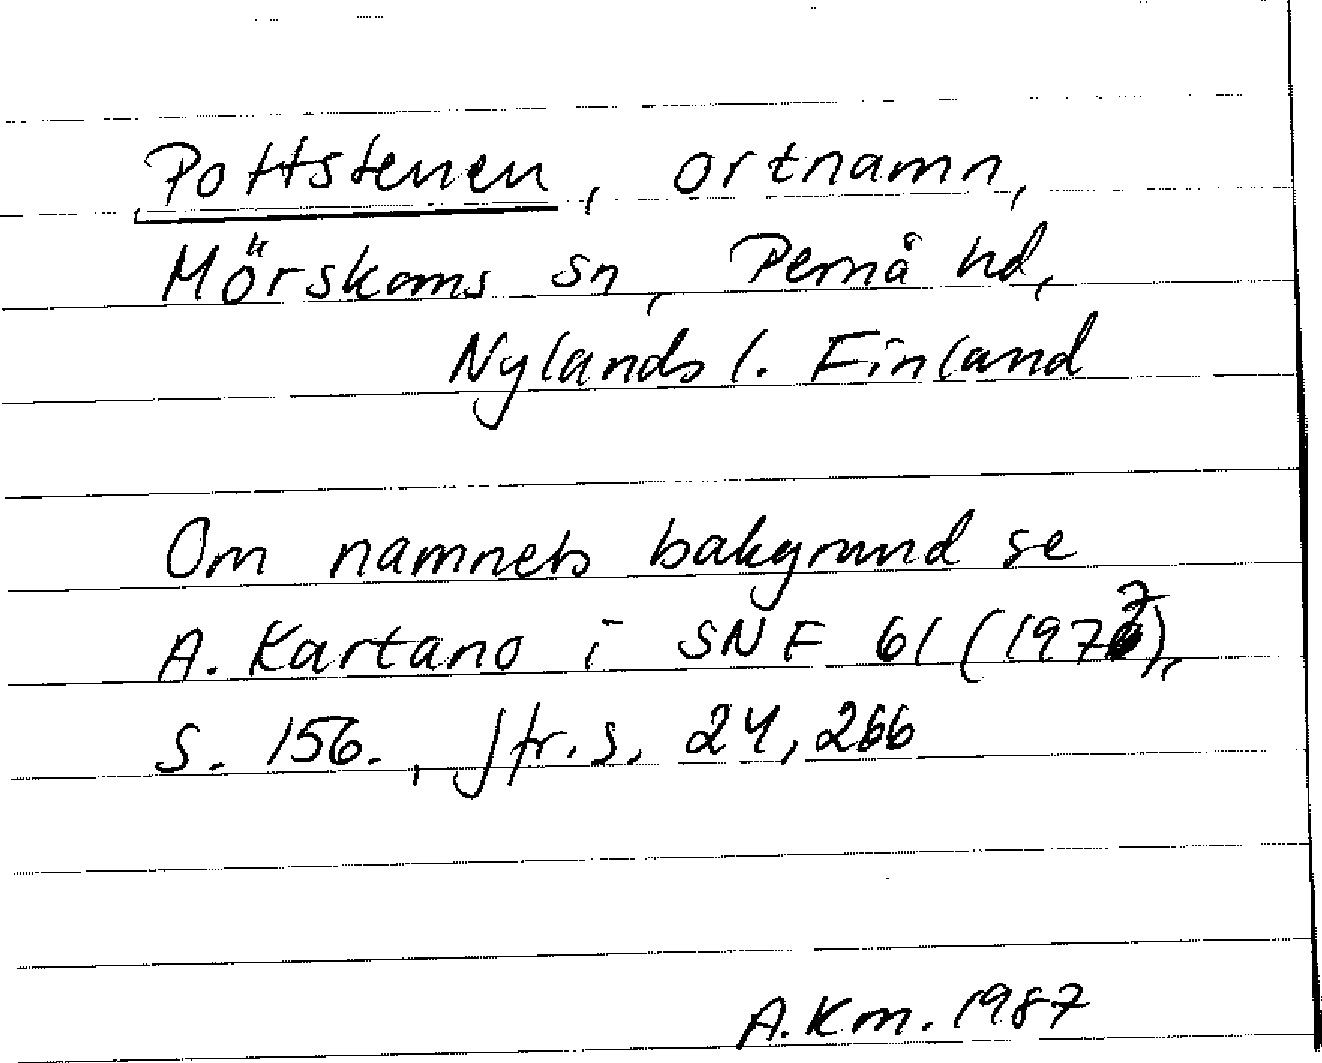 Pottstenen, ortnamn,
Mörskoms sn, Pernå hd,
Nylands l. Finland
Om namnets bakgrund se
A. Kartano i SNF 61 (1977),
s. 156., Jfr. s. 24, 266
A. Km. 1987